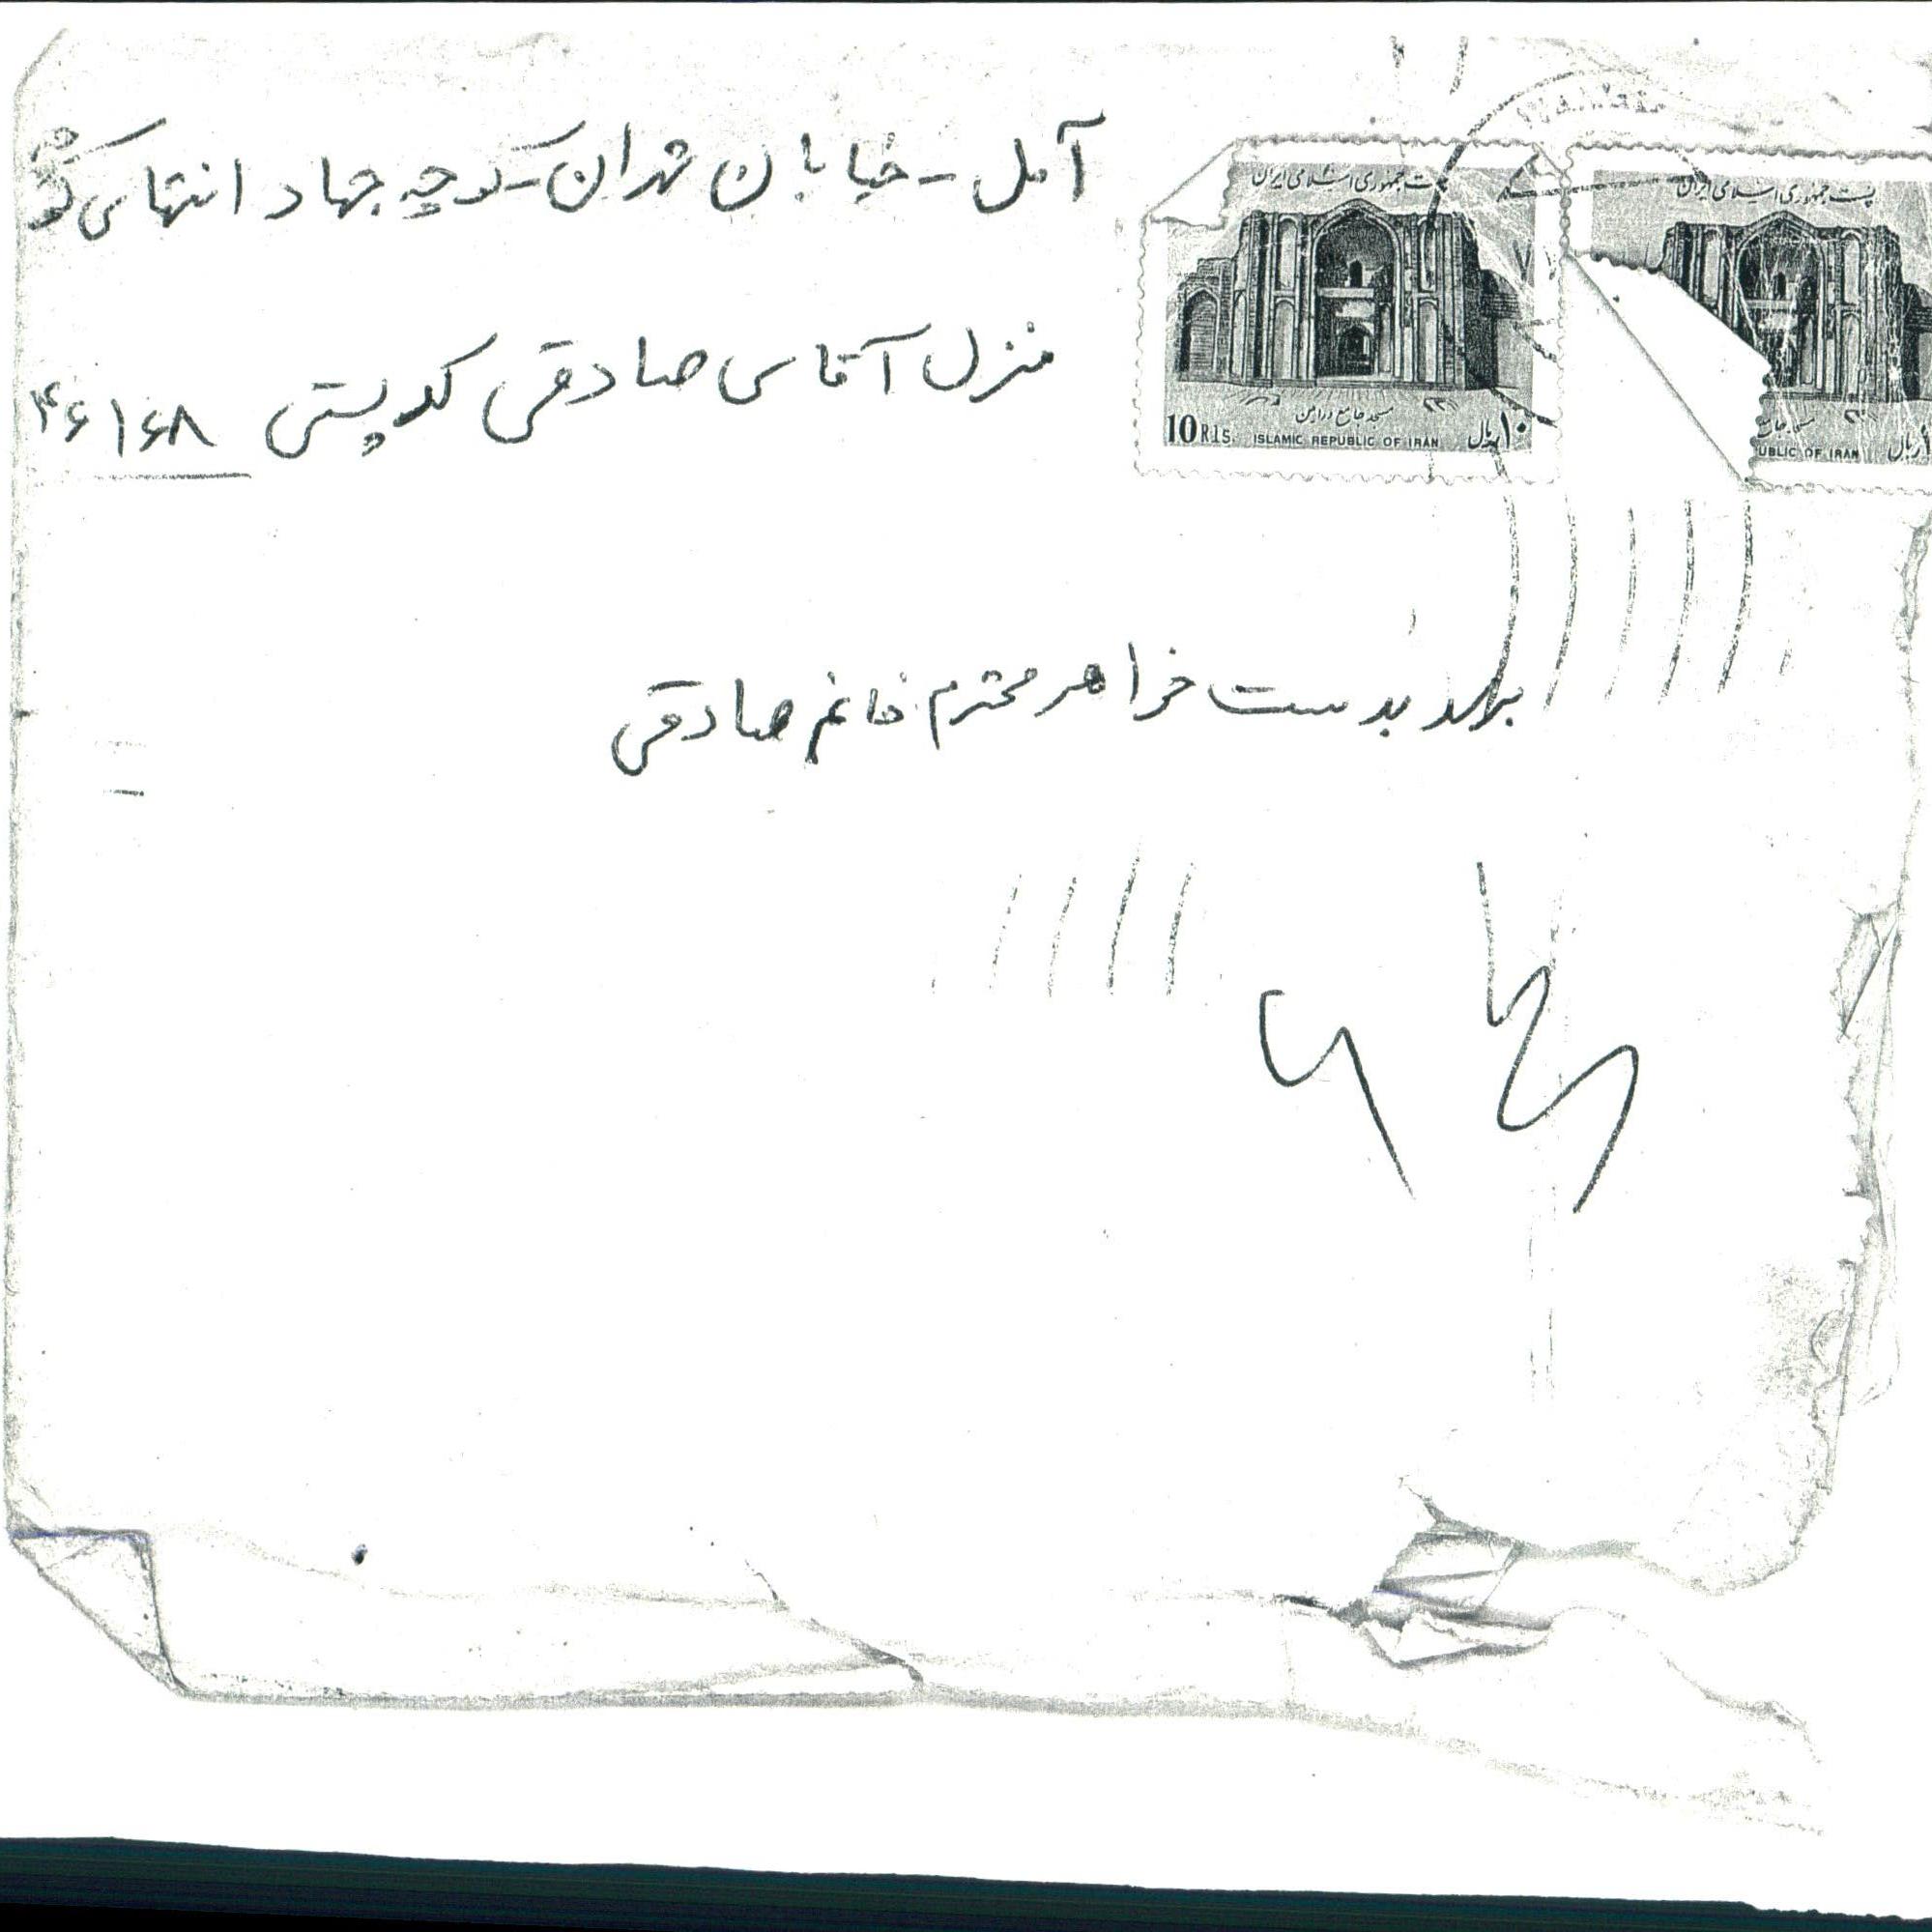 آمل - خیابان تهران - کوچه جهاد انتهای کوچه
منزل آقای صادقی کدپستی ۴۶۱۶۸
برسد بدست خواهر محترم خانم صادقی
پست جمهوری اسلامی ایران
مسجد جامع ورامین
10 Rls. ISLAMIC REPUBLIC OF IRAN ۱۰ ریال
پست جمهوری اسلامی ایران
UBLIC OF IRAN ریال